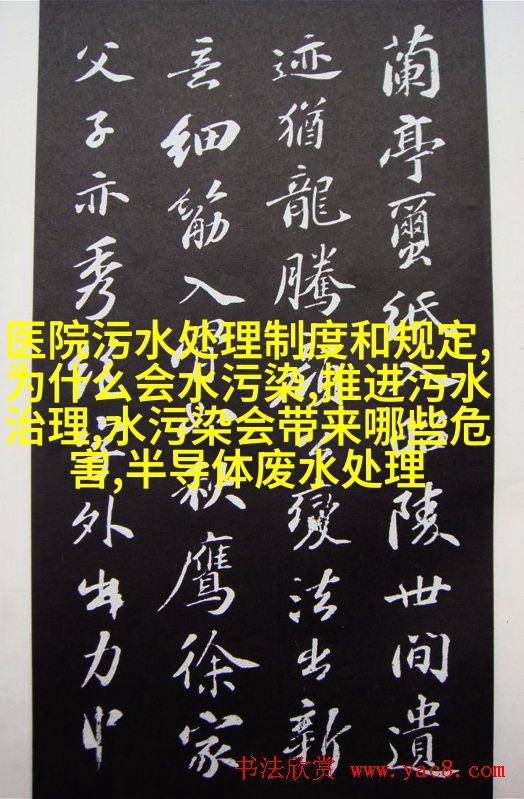 蘭亭蠒紙入陵世間遺
迹猶龍騰變法出新
意細筋入秋鷹徐家
父子亦秀絕外出力中
医院污水处理制度和规定,
为什么会水污染,推进污水
治理,水污染会带来哪些危
害,半导体废水处理
书法欣赏 www.yac8.com